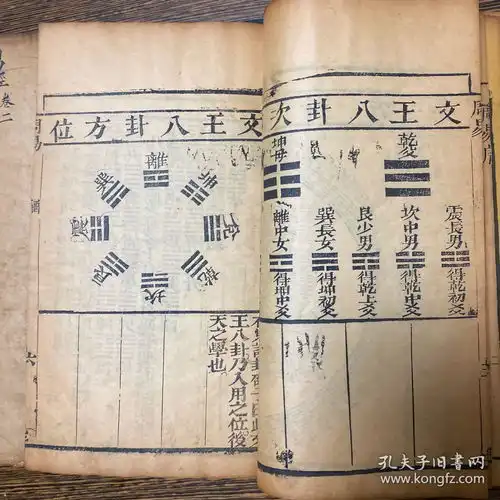 文王八卦次
乾父
坤母
震長男
坎中男
艮少男
巽長女
離中女
得乾初爻
得乾中爻
得乾上爻
得坤初爻
得坤中爻
文王八卦方位
離
巽
震
艮
坎
乾
王八卦乃入用之位後
天之學也
卷二
孔夫子旧书网
www.kongfz.com